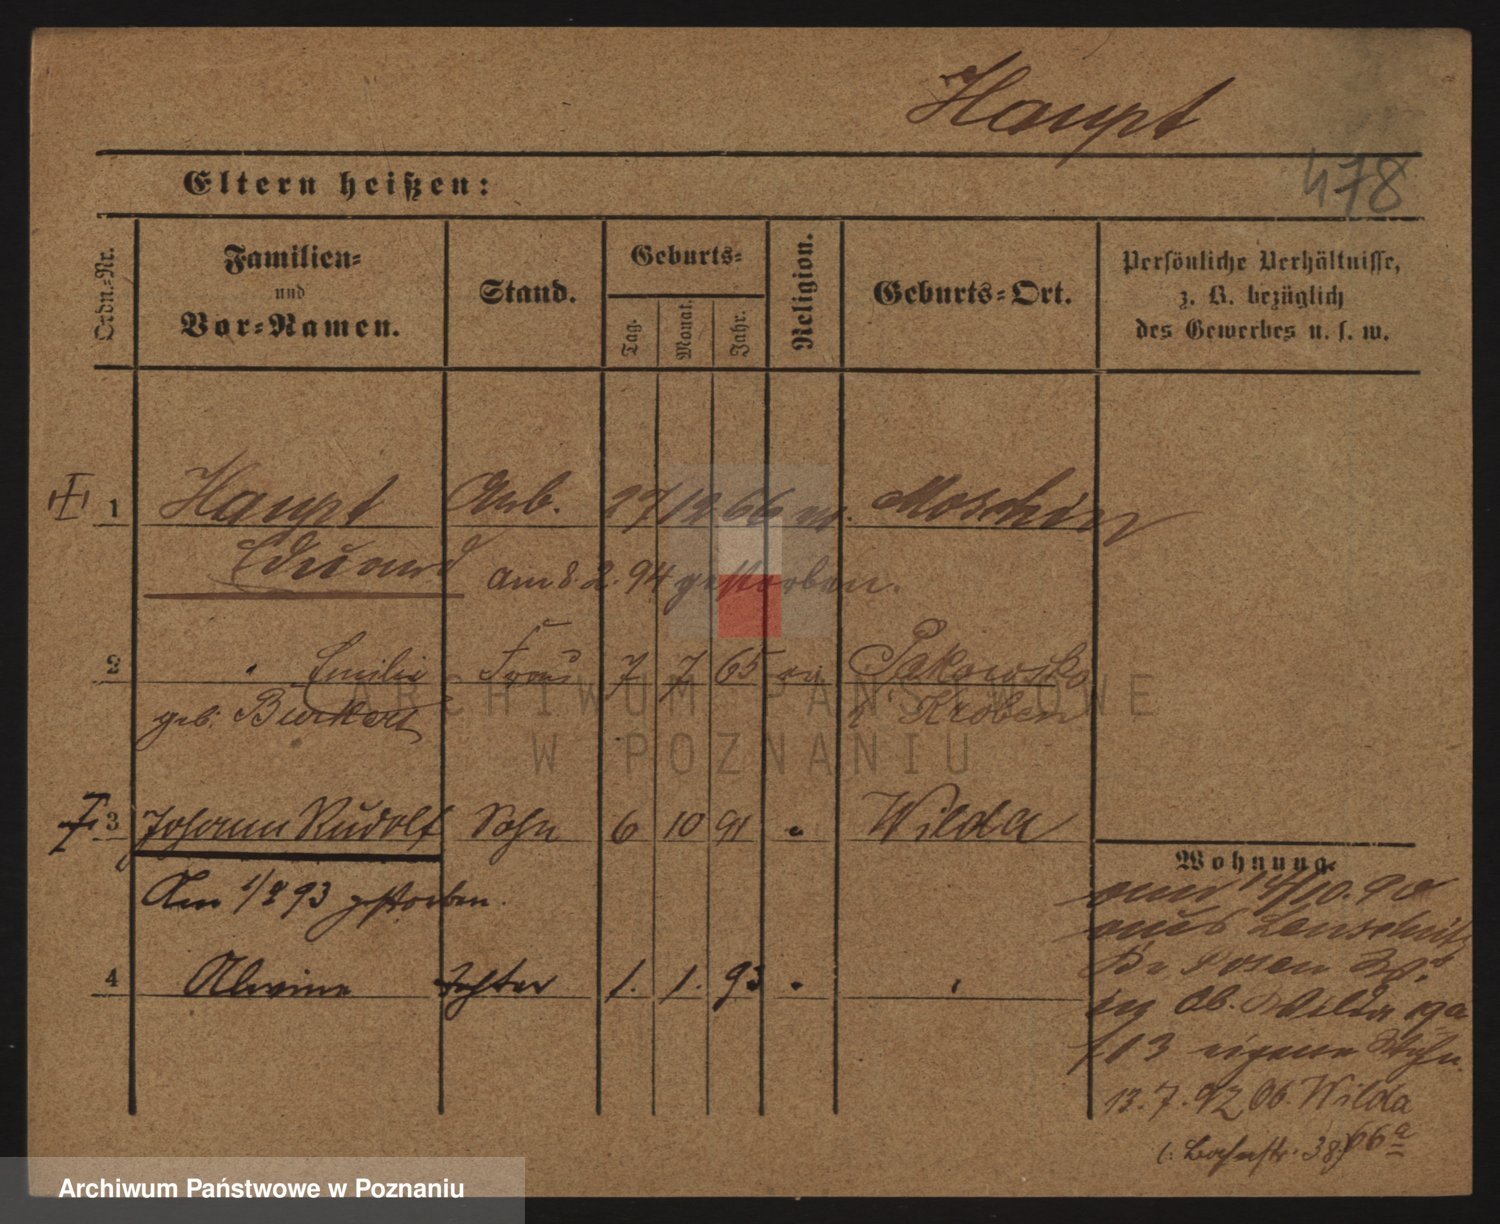 Haupt
478
Eltern heißen:
Ordn.-Nr.
Familien-
und
Vor-Namen.
Stand.
Geburts-
Tag.
Monat.
Jahr.
Religion.
Geburts-Ort.
Persönliche Verhältnisse,
z. B. bezüglich
des Gewerbes u. s. w.
1 Haupt Arb. 27/12 66 ev. Moschin
Eduard am 8. 2. 94 gestorben.
2 " Emilie Frau 7 7 65 ev Pakowsko
geb. Burkert Kr Kröben
3 Johann Rudolf Sohn 6 10 91 " Wilda
Am 1/2 93 gestorben.
4 Alwine Tochter 1. 1. 93 " "
Wohnung.
am 14/10. 90
aus
Posen
in Ob. Wilda
13 eigene Wohn.
13. 7. 92 Ob. Wilda
(: Bahnstr. 38) 66a
ARCHIWUM PAŃSTWOWE
W POZNANIU
Archiwum Państwowe w Poznaniu